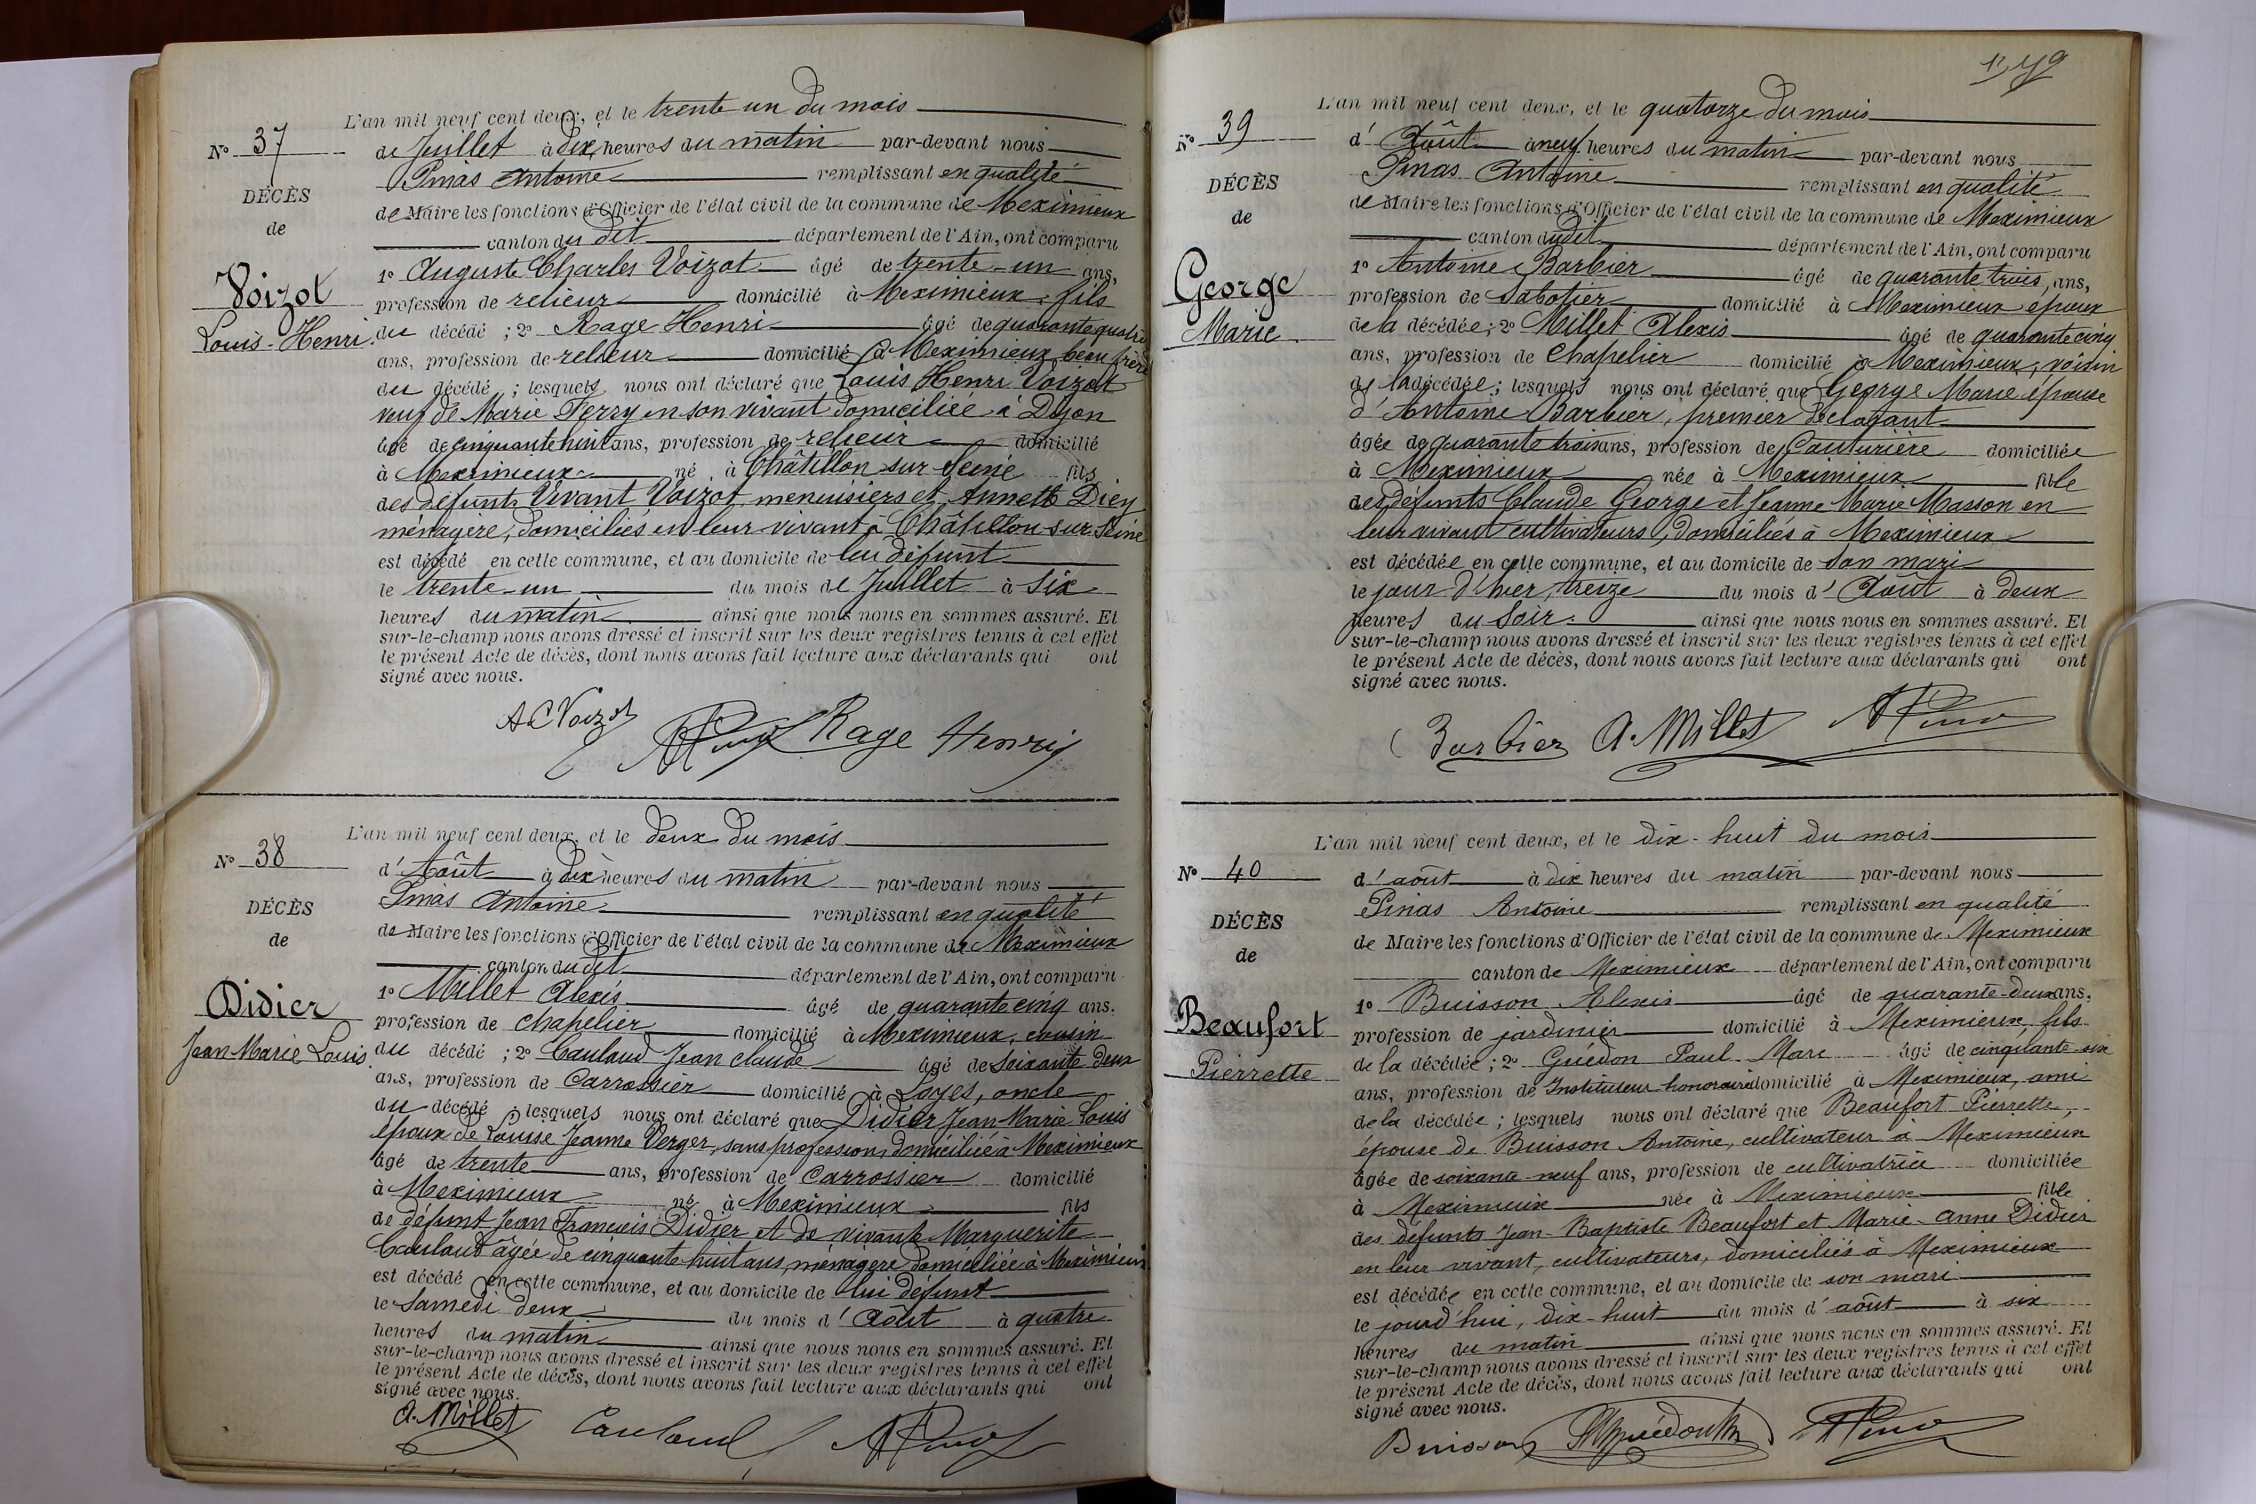 L'an mil neuf cent deux, et le trente un du mois
N° 37
de Juillet à dix heures du matin par-devant nous
Pinas Antoine remplissant en qualité
DÉCÈS
de Maire les fonctions d'Officier de l'état civil de la commune de Meximieux
de
canton du dit département de l'Ain, ont comparu
1° Auguste Charles Voizot âgé de trente-un ans,
Voizot
profession de relieur domicilié à Meximieux, fils
Louis-Henri.
du décédé ; 2° Rage Henri âgé de quarante quatre
ans, profession de relieur domicilié à Meximieux, beau frère
du décédé ; lesquels nous ont déclaré que Louis Henri Voizot
veuf de Marie Ferry en son vivant domiciliée à Dijon
âgé de cinquante huit ans, profession de relieur domicilié
à Meximieux né à Châtillon sur Seine fils
des défunts Vivant Voizot menuisiers et Annette Diey
ménagère, domiciliés en leur vivant à Châtillon-sur-Seine
est décédé en cette commune, et au domicile de lui défunt
le trente-un du mois de Juillet à six
heures du matin ainsi que nous nous en sommes assuré. Et
sur-le-champ nous avons dressé et inscrit sur les deux registres tenus à cet effet
le présent Acte de décès, dont nous avons fait lecture aux déclarants qui ont
signé avec nous.
A C Voizot
Rage Henri
L'an mil neuf cent deux, et le deux du mois
N° 38
d'Août à dix heures du matin par-devant nous
Pinas Antoine remplissant en qualité
DÉCÈS
de Maire les fonctions d'Officier de l'état civil de la commune de Meximieux
de
canton du dit département de l'Ain, ont comparu
1° Millet Alexis âgé de quarante cinq ans,
Didier
profession de chapelier domicilié à Meximieux, cousin
Jean Marie Louis.
du décédé ; 2° Caulaud Jean Claude âgé de soixante deux
ans, profession de Carrossier domicilié à Loyes, oncle
du décédé lesquels nous ont déclaré que Didier Jean-Marie Louis
époux de Louise Jeanne Verger, sans profession, domiciliée à Meximieux
âgé de trente ans, profession de Carrossier domicilié
à Meximieux né à Meximieux fils
de défunt Jean François Didier et de vivante Marguerite
Caulaud âgée de cinquante huit ans, ménagère domiciliée à Meximieux
est décédé en cette commune, et au domicile de lui défunt
le Samedi deux du mois d'Août à quatre
heures du matin ainsi que nous nous en sommes assuré. Et
sur-le-champ nous avons dressé et inscrit sur les deux registres tenus à cet effet
le présent Acte de décès, dont nous avons fait lecture aux déclarants qui ont
signé avec nous.
A. Millet Caulaud
L'an mil neuf cent deux, et le quatorze du mois
N° 39
d'Août à neuf heures du matin par-devant nous
Pinas Antoine remplissant en qualité
DÉCÈS
de Maire les fonctions d'Officier de l'état civil de la commune de Meximieux
de
canton dudit département de l'Ain, ont comparu
1° Antoine Barbier âgé de quarante trois, ans,
George
profession de Sabotier domicilié à Meximieux époux
Marie
de la décédée ; 2° Millet Alexis âgé de quarante cinq
ans, profession de Chapelier domicilié à Meximieux, voisin
de la décédée ; lesquels nous ont déclaré que George Marie épouse
d'Antoine Barbier, premier déclarant
âgée de quarante trois ans, profession de Couturière domiciliée
à Meximieux née à Meximieux fille
des défunts Claude George et Jeanne Marie Masson en
leur vivant cultivateurs, domiciliés à Meximieux
est décédée en cette commune, et au domicile de son mari
le jour d'hier, treize du mois d'Août à deux
heures du soir. ainsi que nous nous en sommes assuré. Et
sur-le-champ nous avons dressé et inscrit sur les deux registres tenus à cet effet
le présent Acte de décès, dont nous avons fait lecture aux déclarants qui ont
signé avec nous.
Barbier A. Millet
L'an mil neuf cent deux, et le dix-huit du mois
N° 40
d'août à dix heures du matin par-devant nous
Pinas Antoine remplissant en qualité
DÉCÈS
de Maire les fonctions d'Officier de l'état civil de la commune de Meximieux
de
canton de Meximieux département de l'Ain, ont comparu
1° Buisson Alexis âgé de quarante-deux ans,
Beaufort
profession de jardinier domicilié à Meximieux, fils
Pierrette
de la décédée ; 2° Guédon Paul-Marc âgé de cinquante-six
ans, profession de Instituteur honoraire domicilié à Meximieux, ami
de la décédée ; lesquels nous ont déclaré que Beaufort Pierrette,
épouse de Buisson Antoine, cultivateur à Meximieux
âgée de soixante-neuf ans, profession de cultivatrice domiciliée
à Meximieux née à Meximieux fille
des défunts Jean-Baptiste Beaufort et Marie-Anne Didier
en leur vivant, cultivateurs, domiciliés à Meximieux
est décédée en cette commune, et au domicile de son mari
le jourd'hui, dix-huit du mois d'août à six
heures du matin ainsi que nous nous en sommes assuré. Et
sur-le-champ nous avons dressé et inscrit sur les deux registres tenus à cet effet
le présent Acte de décès, dont nous avons fait lecture aux déclarants qui ont
signé avec nous.
Buisson